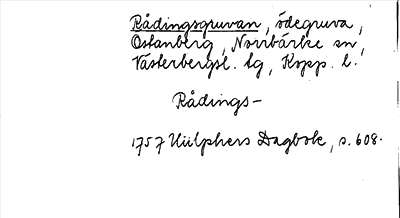 Rådingsgruvan, ödegruva,
Ostanberg, Norrbärke sn,
Västerbergsl. tg, Kopp. l.
Rådings-
1757 Hülphers Dagbok, s. 608.